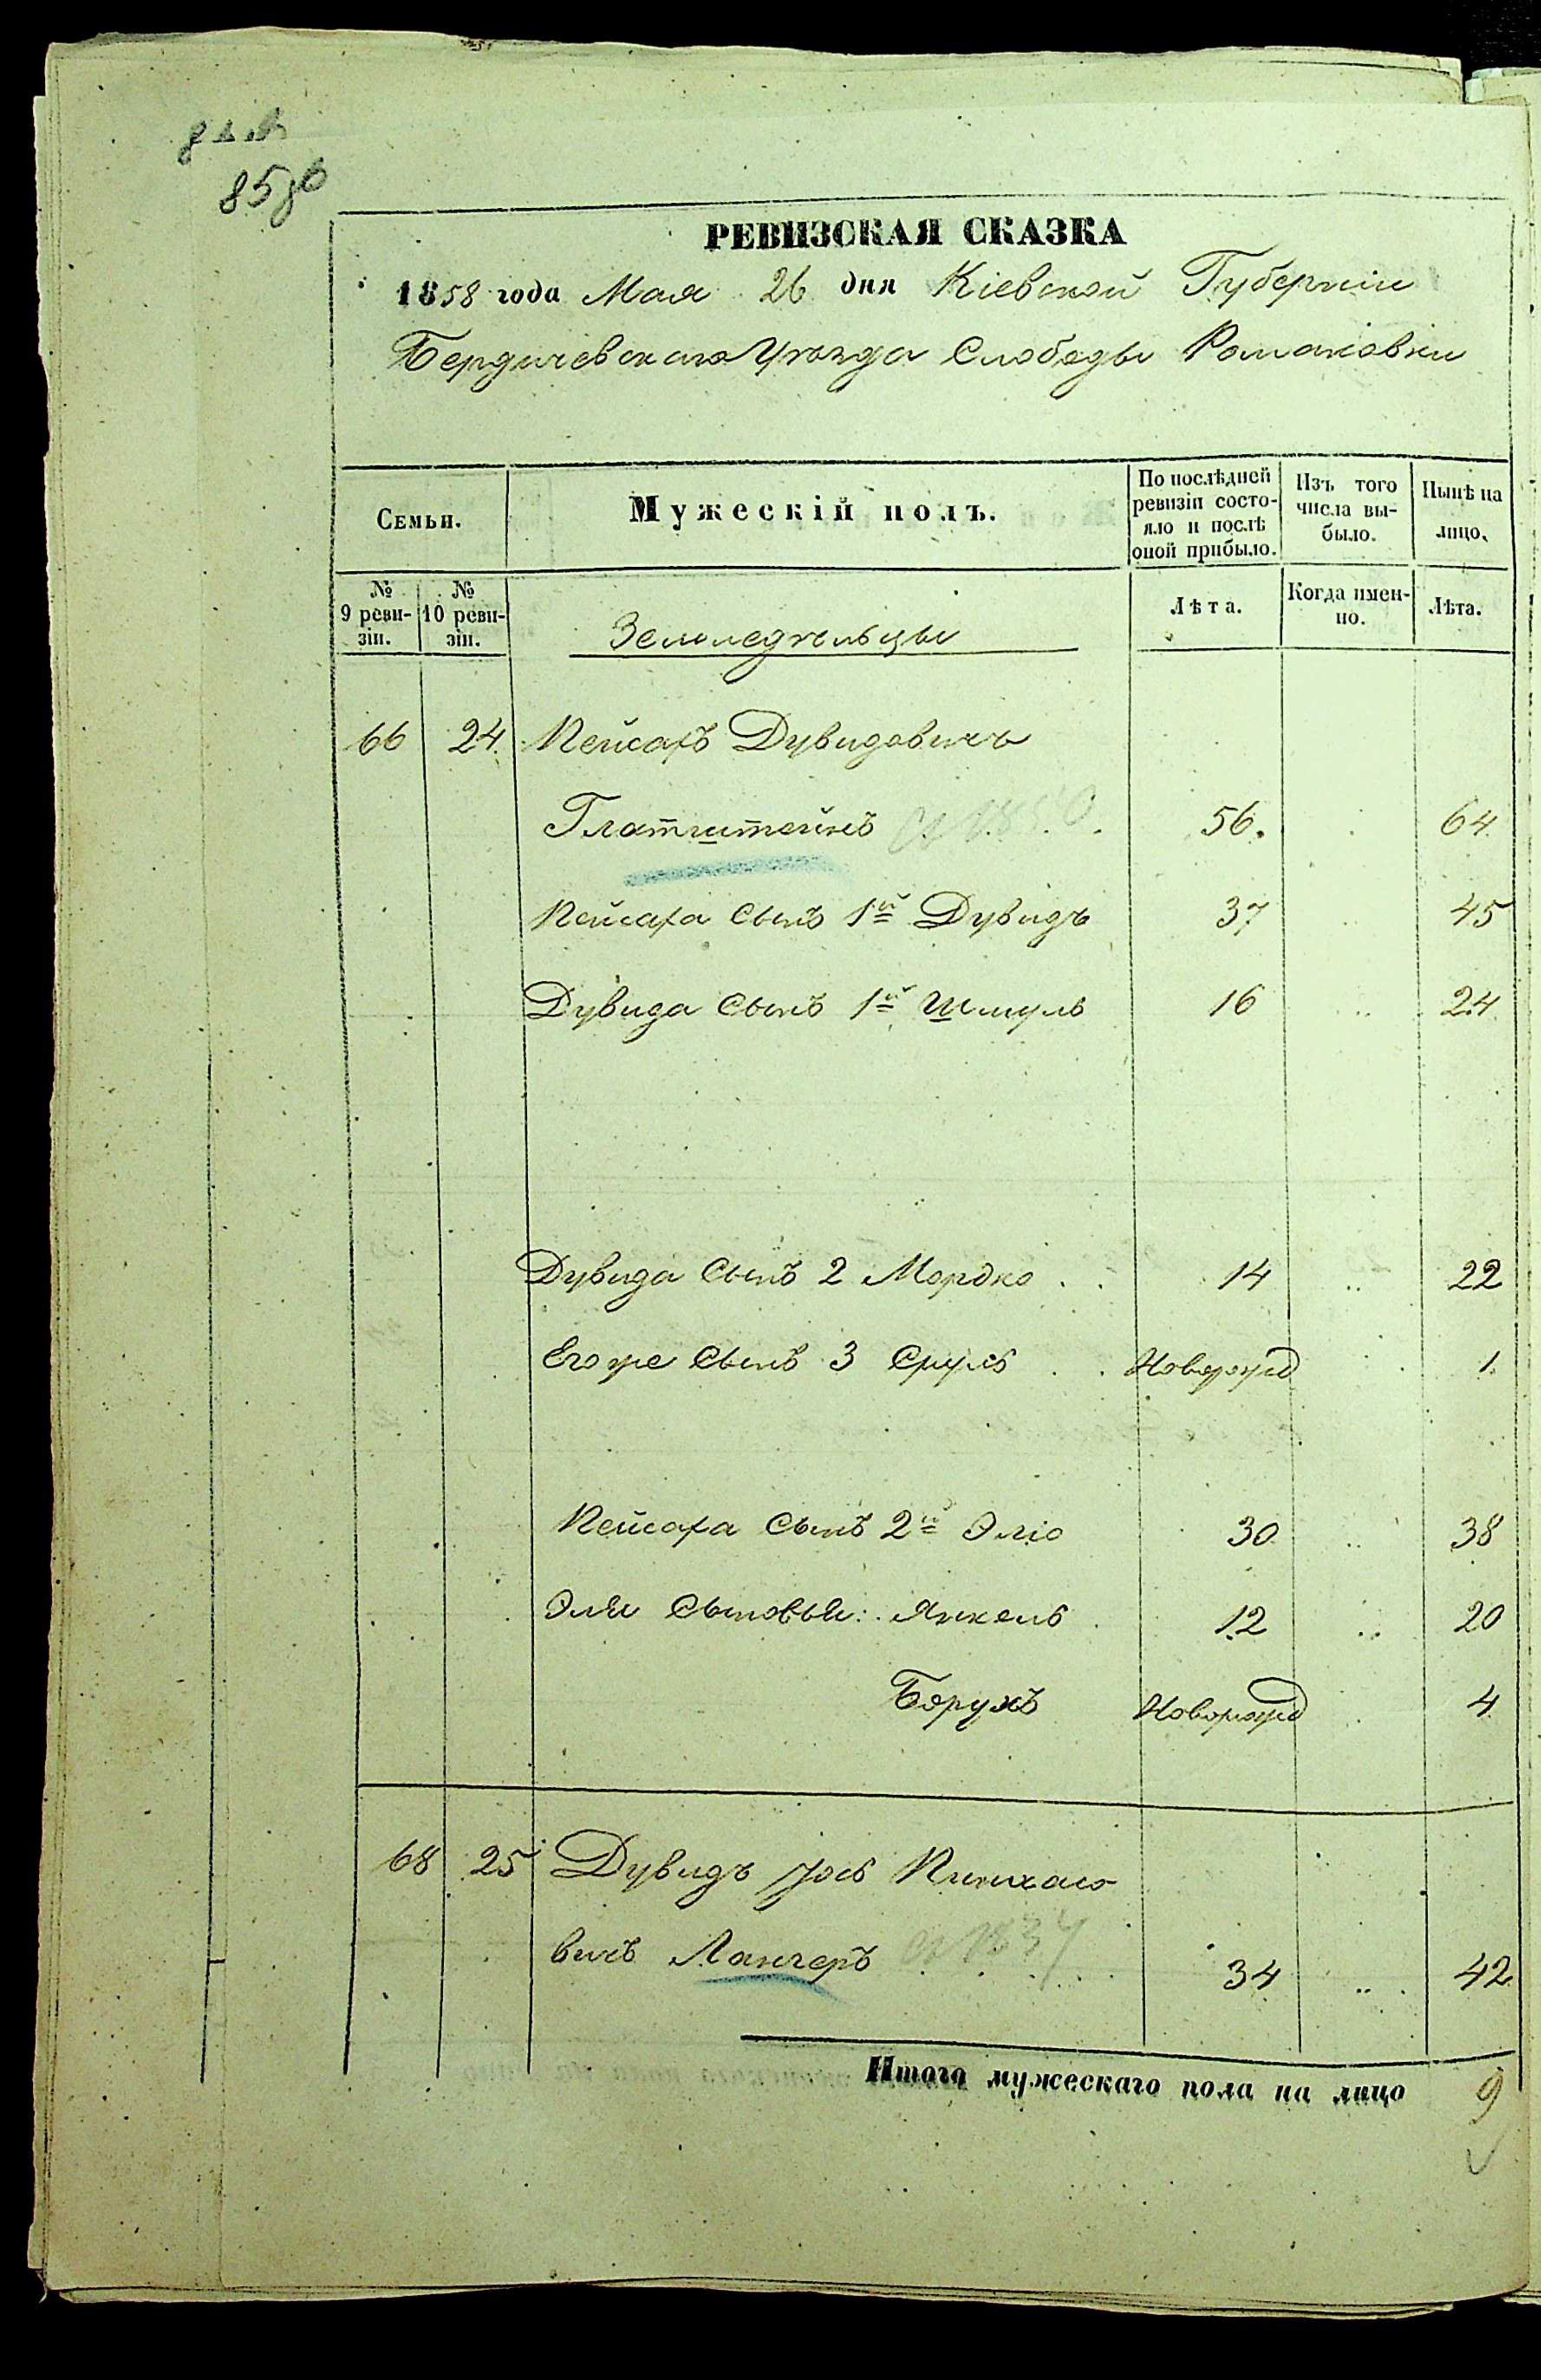 85 об
РЕВИЗСКАЯ СКАЗКА
1858 года Мая 26 дня Кіевской Губерніи
Бердичевскаго Уѣзда Слободы Романовки
Семьи.
Мужескій полъ.
По послѣдней ревизіи состояло и послѣ оной прибыло.
Изъ того числа выбыло.
Нынѣ на лицо.
№ 9 ревизіи.
№ 10 ревизіи.
Земледѣльцы
Лѣта.
Когда именно.
Лѣта.
66 24. Пейсахъ Дувидовичъ
Глатштейнъ 56. 64
Пейсаха Сынъ 1й Дувидъ 37 45
Дувида Сынъ 1й Шмуль 16 24
Дувида Сынъ 2 Мордко 14 22
Егоже Сынъ 3 Сруль Новорожд 1
Пейсаха Сынъ 2й Эліо 30 38
Эли Сыновья: Янкель 12 20
Борухъ Новорожд 4
68 25 Дувидъ Іось Пинхасо
вичъ Лангеръ 34 42
Итого мужескаго пола на лицо 9